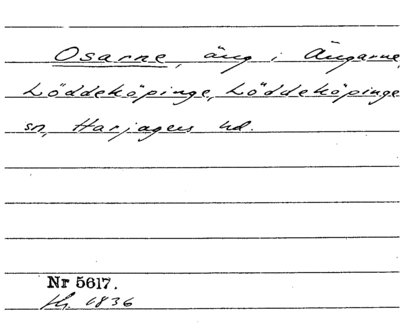 Osarne, äng i Ängarne,
Löddeköpinge, Löddeköpinge
sn, Harjagers hd.
Nr 5617.
1836